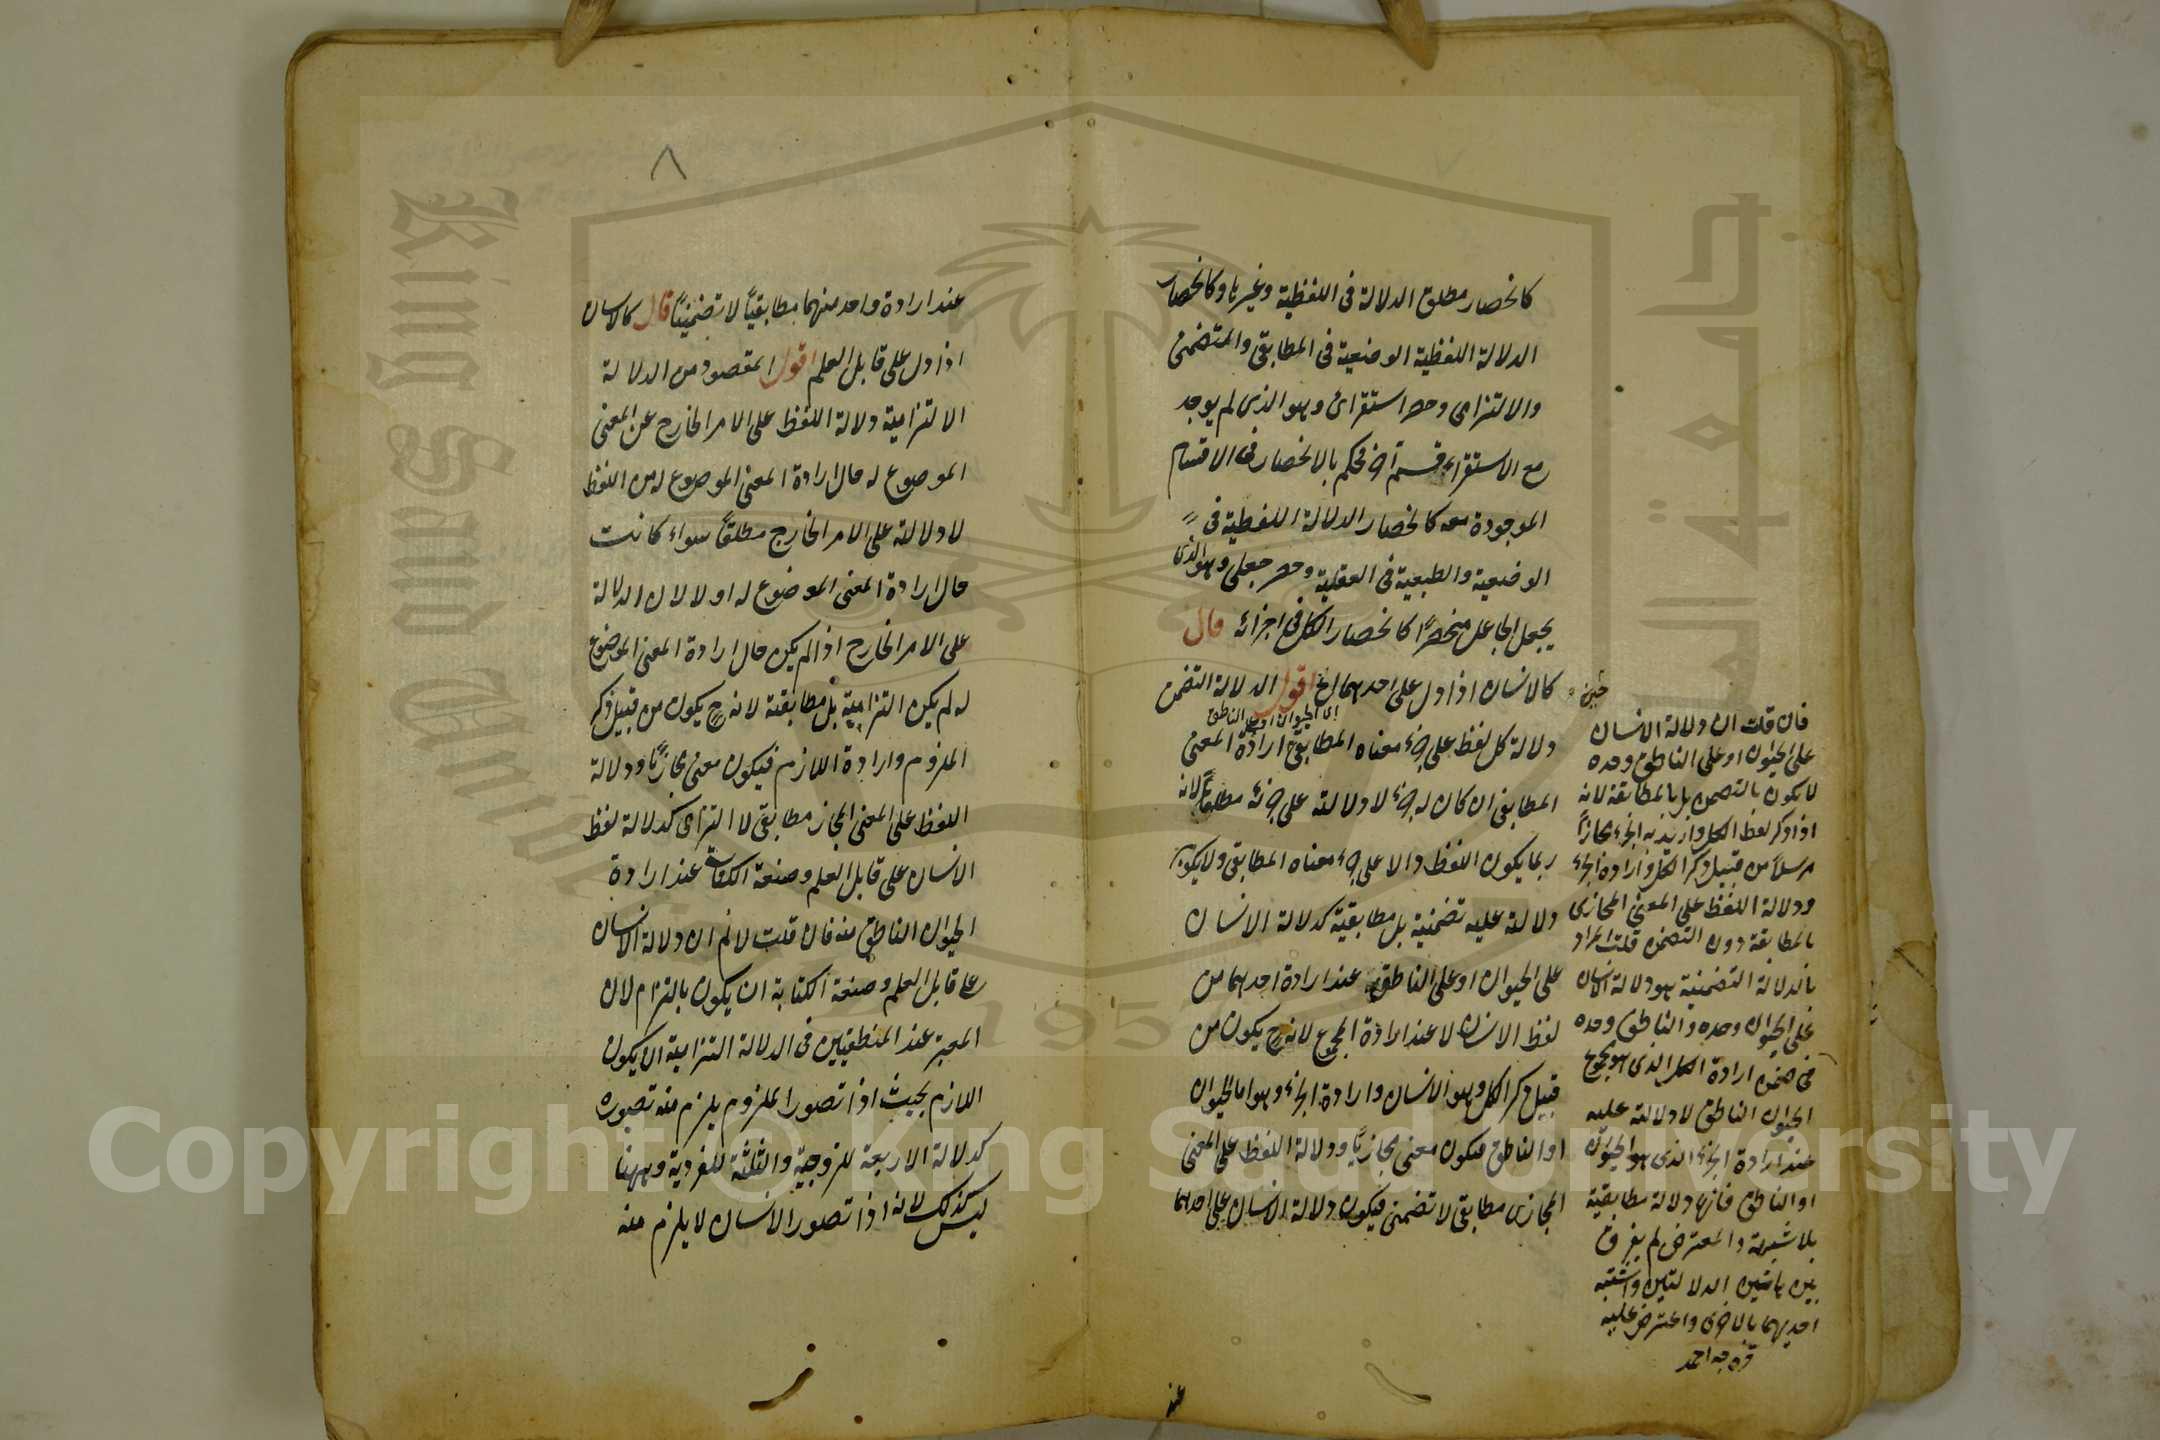 كانحصار مطلق الدلالة فى اللفظية وغيرها وكانحصار
الدلالة اللفظية الوضعية فى المطابقى والتضمنى
والالتزامى وحصر استقرائى وهو الذى لم يوجد
مع الاستقراء قسم آخر فيحكم بالانحصار فى الاقسام
الموجودة معه كانحصار الدلالة اللفظية فى
الوضعية والطبعية فى العقلية وحصر جعلى وهو الذى
يجعل الجاعل منحصرًا كانحصار الكل فى اجزائه قال
كالانسان اذا دل على احدهما الخ اقول الدلالة التضمن
اى الحيوان او الناطق
دلالة كل لفظ على جزء معناه المطابقى ارادة المعنى
المطابقى ان كان له جزء لا دلالته على جزئه مطلقًا لانه
ربما يكون اللفظ دالا على جزء معناه المطابقى ولا يكون
دلالته عليه تضمنية بل مطابقية كدلالة الانسان
على الحيوان او على الناطق عند ارادة احدهما من
لفظ الانسان لا عند ارادة المجموع لانه ح يكون من
قبيل ذكر الكل وهو الانسان وارادة الجزء وهو اما الحيوان
او الناطق فيكون معنى مجازيًا ودلالة اللفظ على المعنى
المجازى مطابقى لا تضمنى فيكون دلالة الانسان على احدهما
عند
فان قلت ان دلالة الانسان
على الحيوان او على الناطق وحده
لا يكون بالتضمن بل بالمطابقة لانه
اذا ذكر لفظ الكل واريد به الجزء مجازًا
مرسلًا من قبيل ذكر الكل وارادة الجزء
ودلالة اللفظ على المعنى المجازى
بالمطابقة دون التضمن قلت المراد
بالدلالة التضمنية هو دلالة الانسان
على الحيوان وحده والناطق وحده
فى ضمن ارادة الكل الذى هو مجموع
الحيوان الناطق لا دلالته عليه
عند ارادة الجزء الذى هو الحيوان
او الناطق فانها دلالة مطابقية
بلا شبهة والمعترض لم يفرق
بين هاتين الدلالتين واشتبه
احديهما بالاخرى واعترض عليه
قره جه احمد
٨
عند ارادة واحد منهما مطابقيًا لا تضمنيًا قال كالانسان
اذا دل على قابل العلم اقول المقصود من الدلالة
الالتزامية دلالة اللفظ على الامر الخارج عن المعنى
الموضوع له حال ارادة المعنى الموضوع له من اللفظ
لا دلالته على الامر الخارج مطلقًا سواء كانت
حال ارادة المعنى الموضوع له او لا لان الدلالة
على الامر الخارج اذا لم يكن حال ارادة المعنى الموضوع
له لم يكن التزامية بل مطابقة لانه ح يكون من قبيل ذكر
الملزوم وارادة اللازم فيكون معنى مجازيًا ودلالة
اللفظ على المعنى المجاز مطابقى لا التزامى كدلالة لفظ
الانسان على قابل العلم وصنعة الكتابة عند ارادة
الحيوان الناطق منه فان قلت لا نم ان دلالة الانسان
على قابل العلم وصنعة الكتابة ان يكون بالتزام لان
المعتبر عند المنطقيين فى الدلالة التزامية ان يكون
اللازم بحيث اذا تصور الملزوم يلزم منه تصوره
كدلالة الاربعة للزوجية والثلثة للفردية وههنا
ليس كذلك لانه اذا تصور الانسان لا يلزم منه
King Saud University
جامعة الملك
1957
Copyright © King Saud University